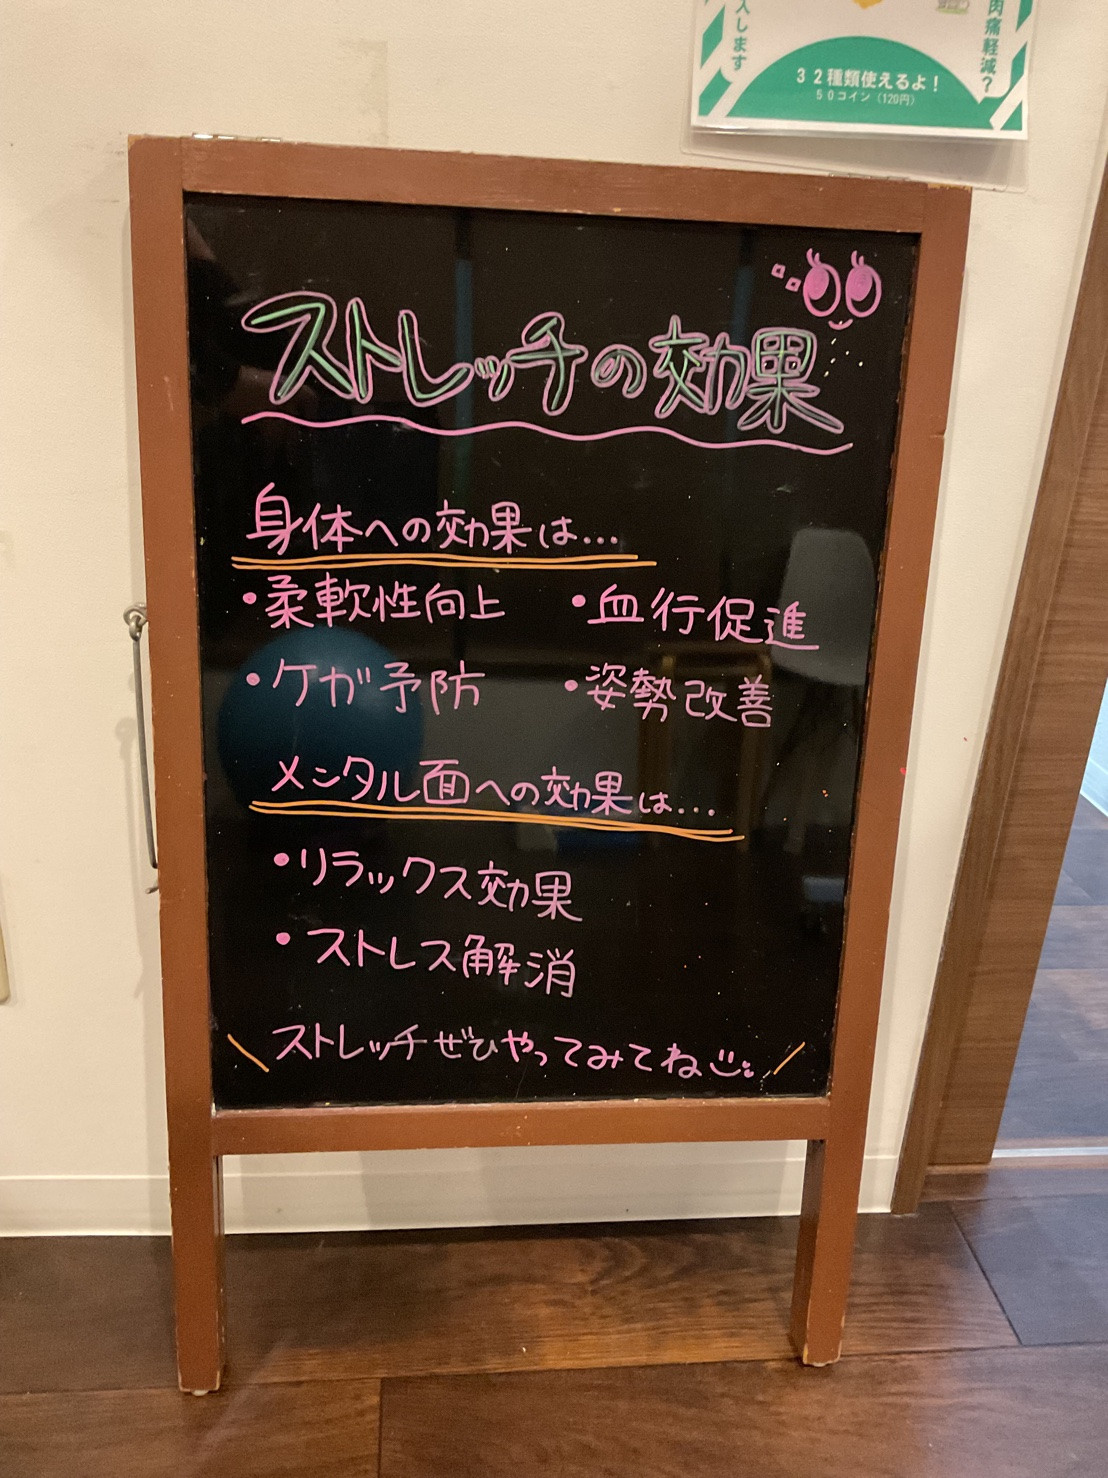 入します
肉痛軽減?
32種類使えるよ!
50コイン(120円)
ストレッチの効果
身体への効果は...
・柔軟性向上 ・血行促進
・ケガ予防 ・姿勢改善
メンタル面への効果は...
・リラックス効果
・ストレス解消
\ストレッチぜひやってみてね/